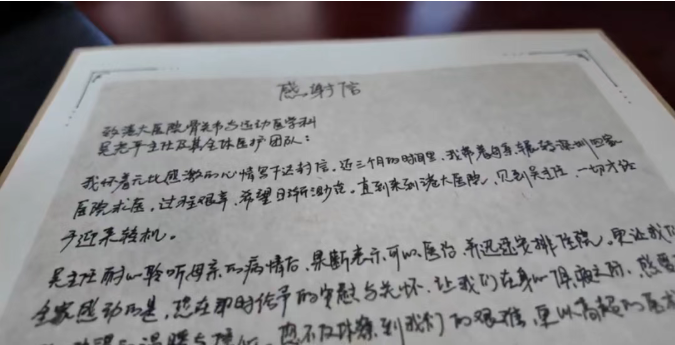 感谢信
致港大医院骨关节与运动医学科
吴老平主任及其全体医护团队：
我怀着无比感激的心情写下这封信。近三个月的时间里，我带着母亲辗转深圳四家
医院求医，过程艰辛，希望日渐渺茫。直到来到港大医院，见到吴主任，一切方终
于迎来转机。
吴主任耐心聆听母亲的病情后，果断表示可以医治，并迅速安排住院。更让我们
全家感动的是，您在即时给予的安慰与关怀，让我们在身心俱疲之际，感受
温暖与 您不仅体察到我们的艰难，更以高超的医